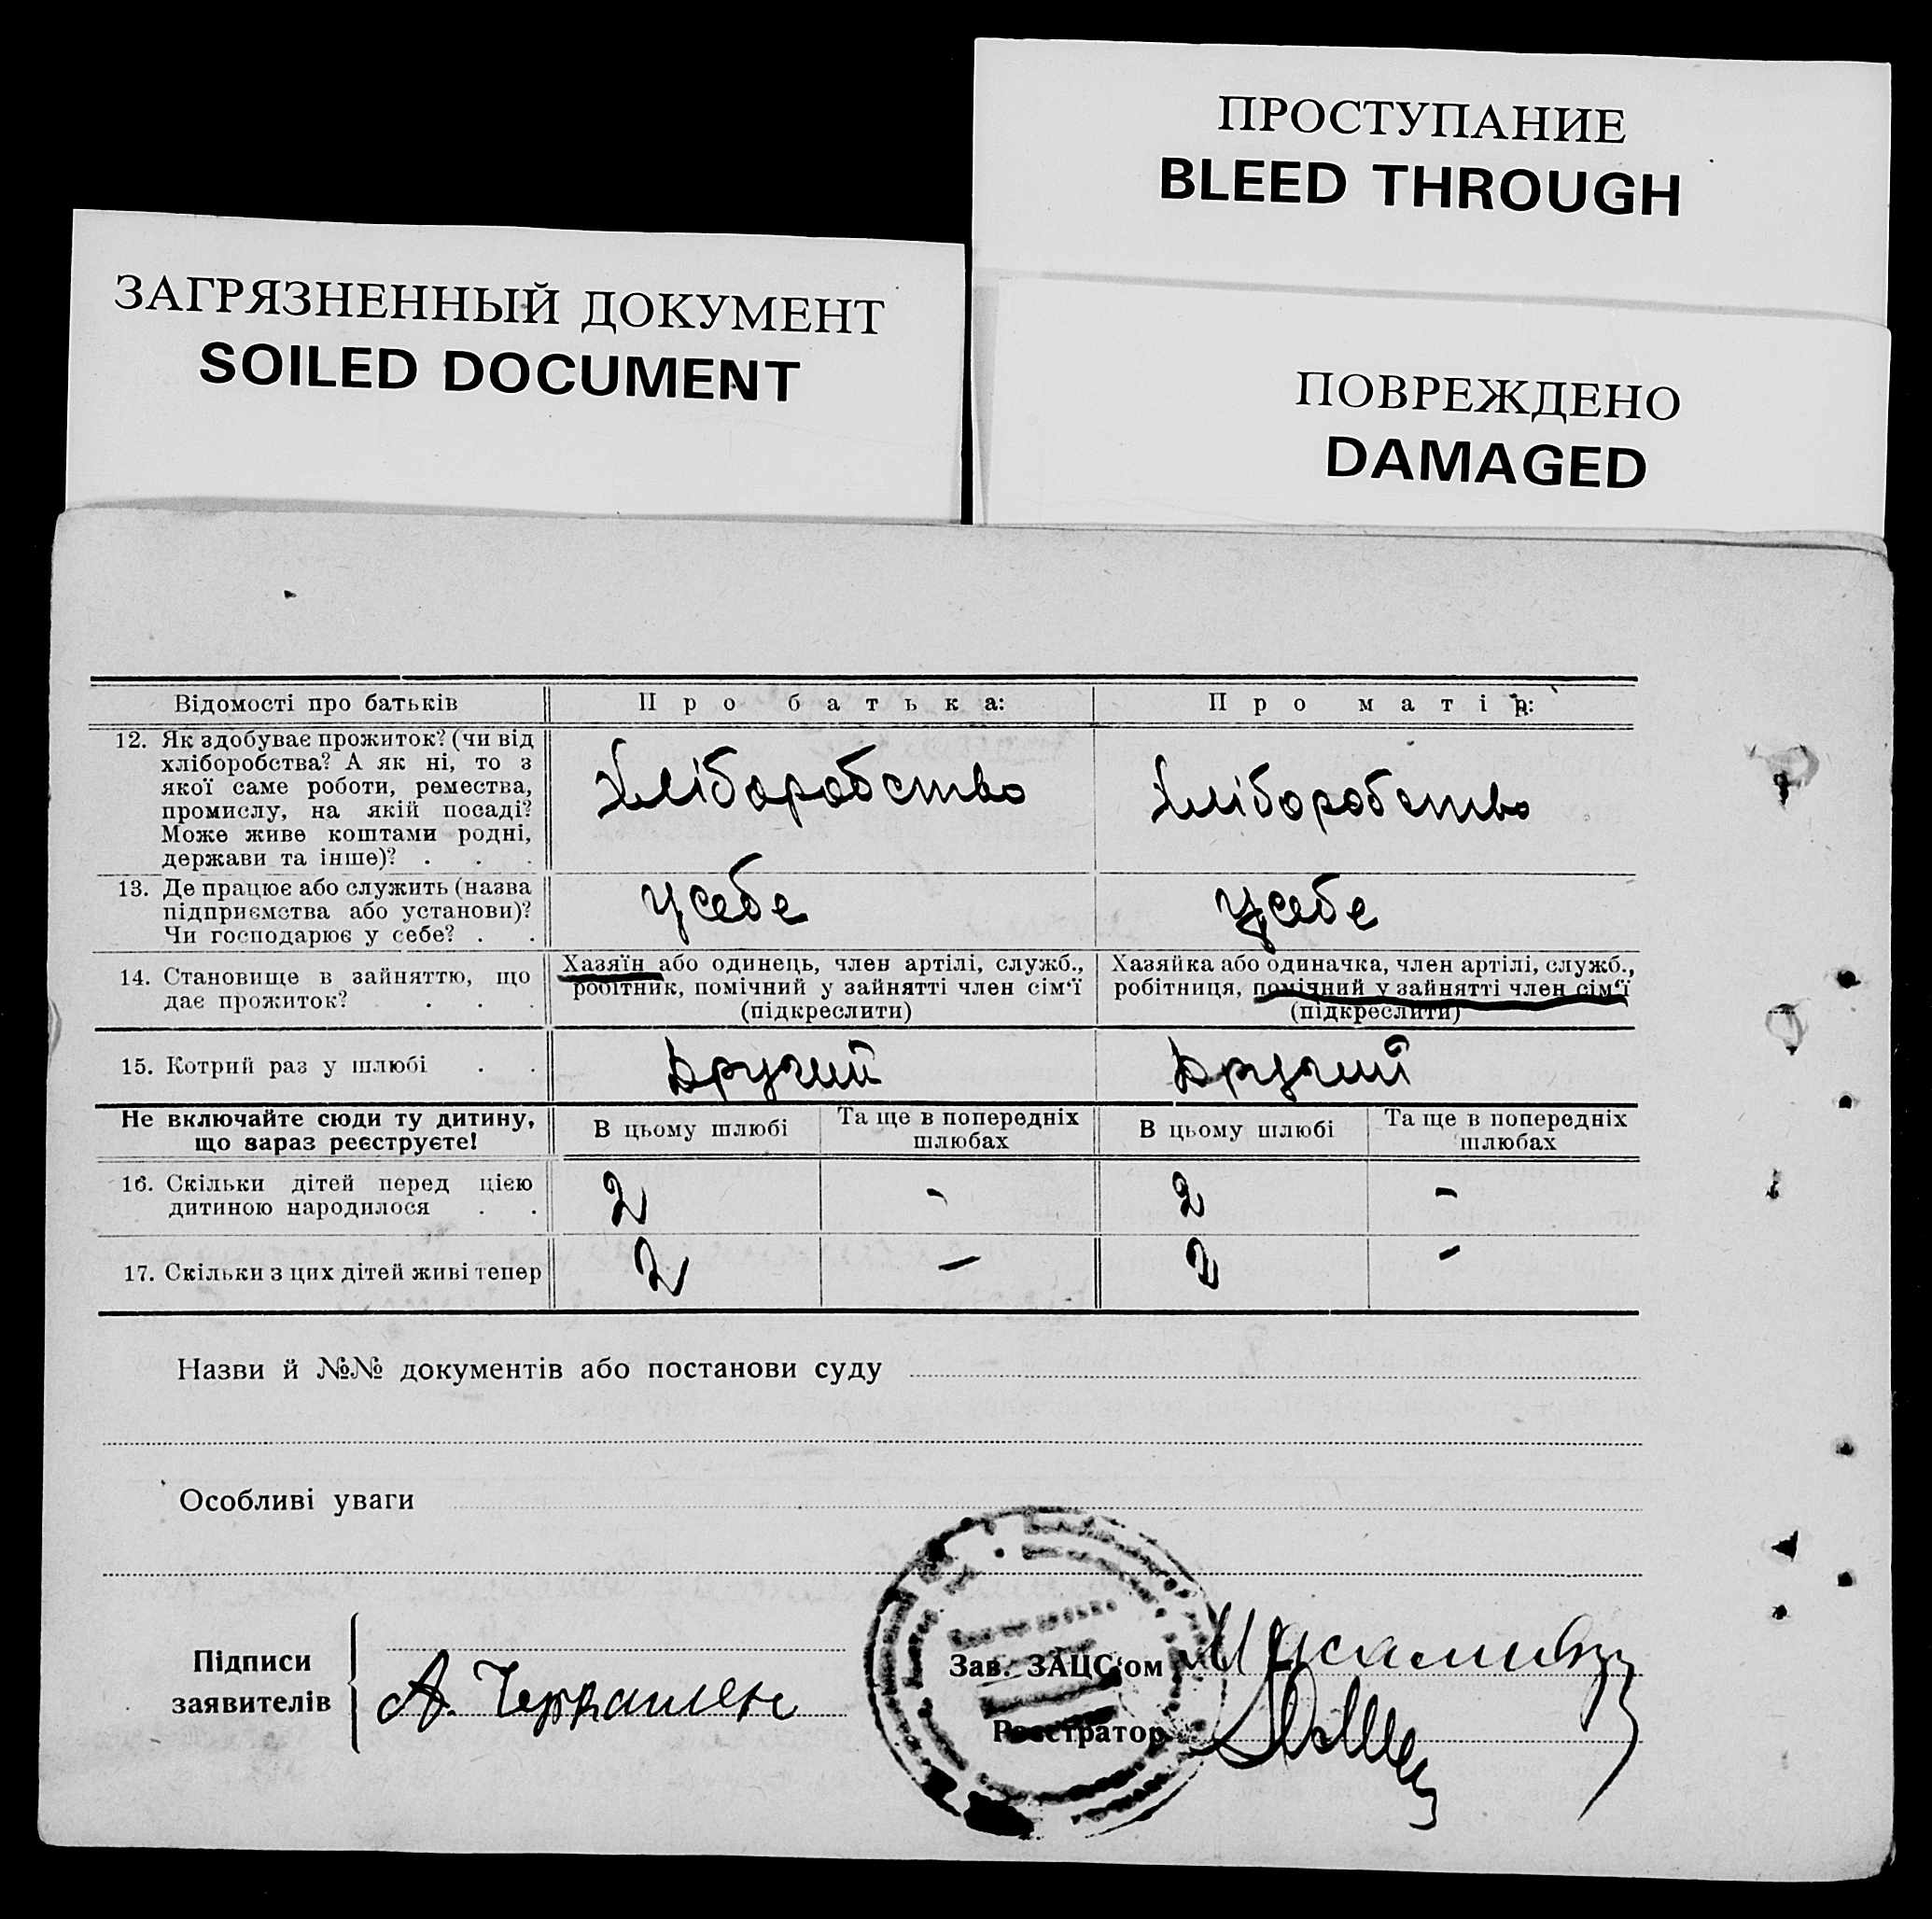 ПРОСТУПАНИЕ
BLEED THROUGH
ЗАГРЯЗНЕННЫЙ ДОКУМЕНТ
SOILED DOCUMENT
ПОВРЕЖДЕНО
DAMAGED
Відомості про батьків
Про батька:
Про матір:
12. Як здобуває прожиток? (чи від
хліборобства? А як ні, то з
якої саме роботи, ремества,
промислу, на якій посаді?
Може живе коштами родні,
держави та інше)? . . .
Хліборобство
Хліборобство
13. Де працює або служить (назва
підприємства або установи)?
Чи господарює у себе? . .
у себе
у себе
14. Становище в зайняттю, що
дає прожиток? . . .
Хазяїн або одинець, член артілі, служб.,
робітник, помічний у зайнятті член сім'ї
(підкреслити)
Хазяйка або одиначка, член артілі, служб.,
робітниця, помічний у зайнятті член сім'ї
(підкреслити)
15. Котрий раз у шлюбі . .
Другий
Другий
Не включайте сюди ту дитину,
що зараз реєструєте!
В цьому шлюбі
Та ще в попередніх
шлюбах
В цьому шлюбі
Та ще в попередніх
шлюбах
16. Скільки дітей перед цією
дитиною народилося . .
2
-
2
-
17. Скільки з цих дітей живі тепер
2
-
2
-
Назви й №№ документів або постанови суду
Особливі уваги
Підписи
заявителів
А.
Зав. ЗАЦС'ом
Реєстратор